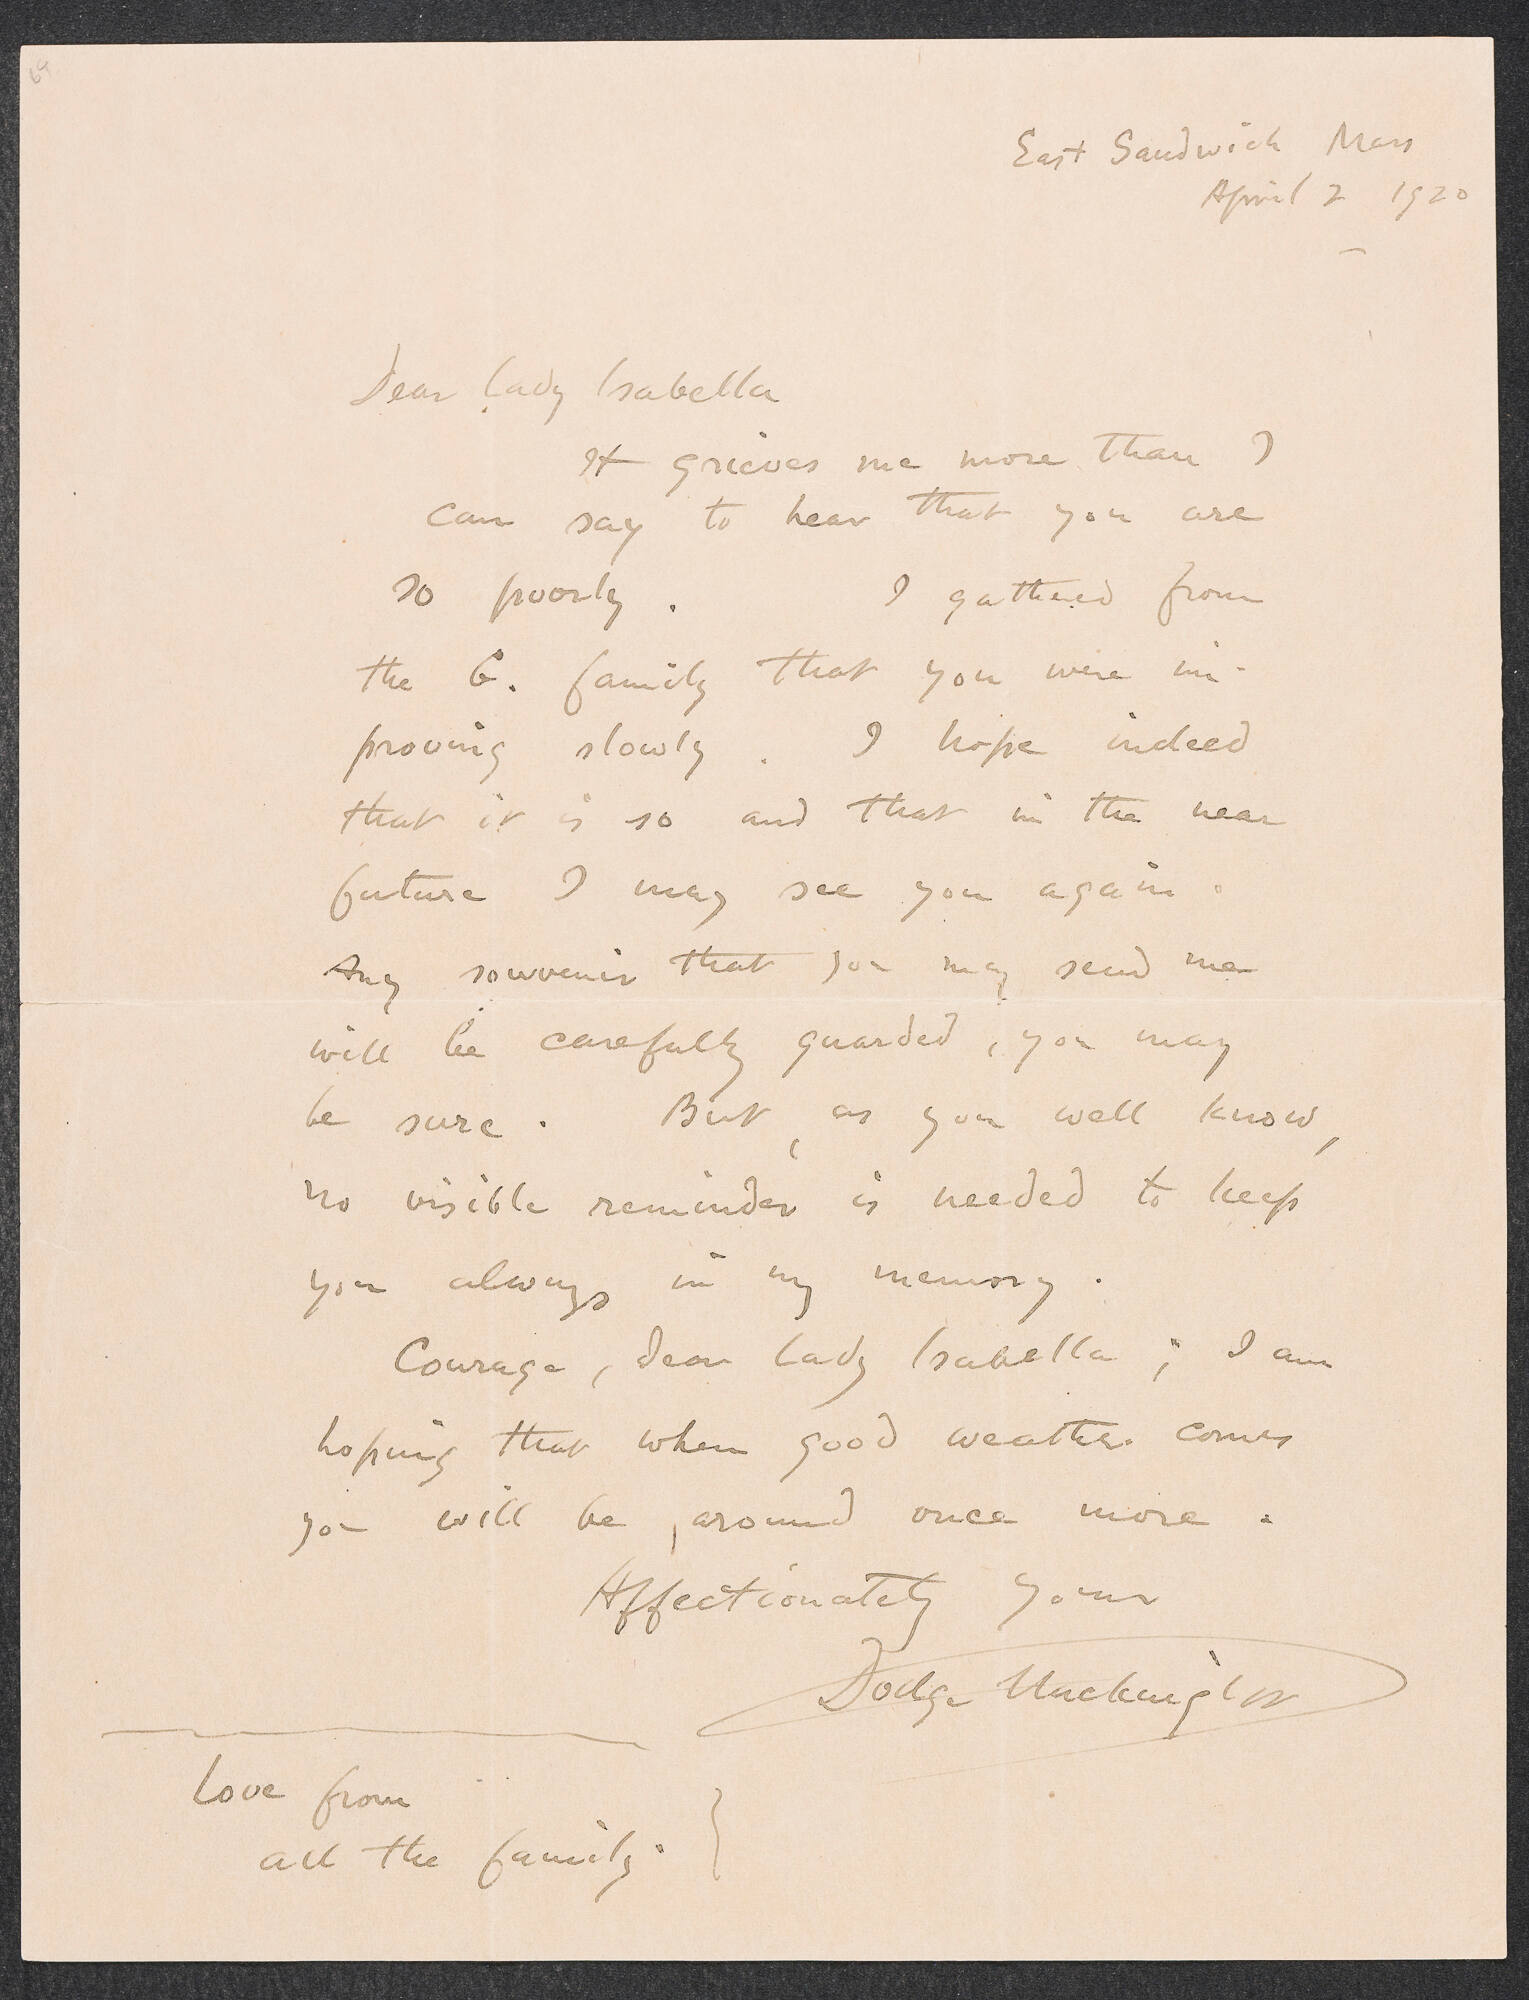 69
East Sandwich Mass
April 2 1920
Dear Lady Isabella
It grieves me more than I
can say to hear that you are
so poorly. I gathered from
the G. family that you were im-
proving slowly. I hope indeed
that it is so and that in the near
future I may see you again.
Any souvenir that you may send me
will be carefully guarded, you may
be sure. But, as you well know,
no visible reminder is needed to keep
you always in my memory.
Courage, dear Lady Isabella; I am
hoping that when good weather comes
you will be around once more.
Affectionately yours
Dodge Macknight
Love from
all the family.